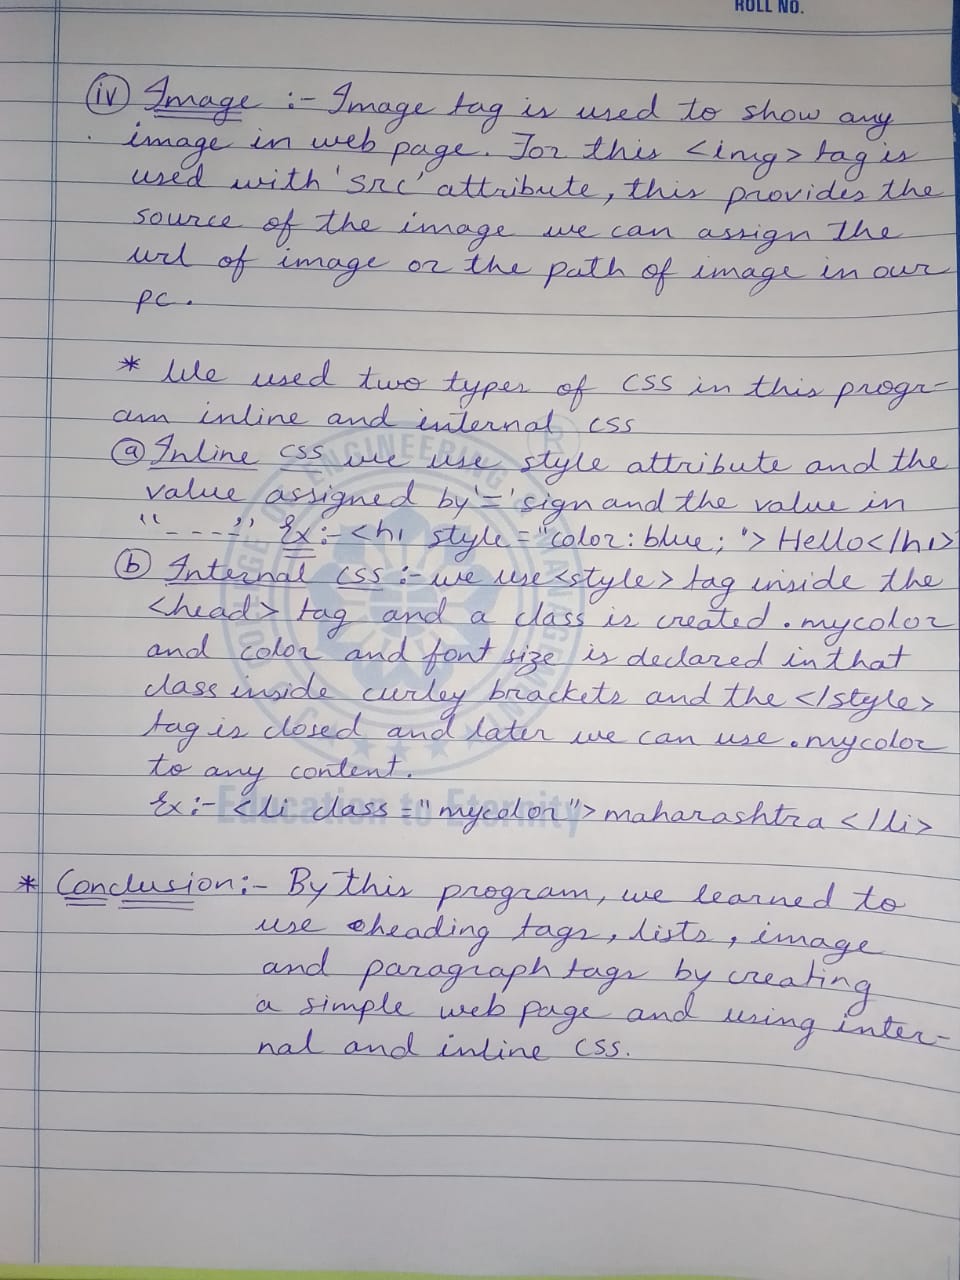 ROLL NO.
(iv) Image :- Image tag is used to show any
image in web page. For this <img> tag is
used with 'src' attribute, this provides the
source of the image we can assign the
url of image or the path of image in our
pc.
* We used two types of CSS in this progr-
am inline and internal css
(a) Inline css we use style attribute and the
value assigned by '=' sign and the value in
"----" Ex:- <h1 style="color:blue;"> Hello</h1>
(b) Internal css :- we use <style> tag inside the
<head> tag and a class is created .mycolor
and color and font size is declared in that
class inside curley brackets and the </style>
tag is closed and later we can use .mycolor
to any content.
Education to Eternity
Ex:- <li class="mycolor"> maharashtra </li>
* Conclusion:- By this program, we learned to
use heading tags, lists, image
and paragraph tags by creating
a simple web page and using inter-
nal and inline CSS.